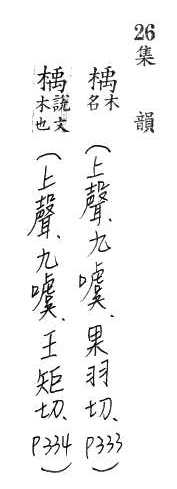 26集 韻
楀木名(上聲、九噳、果羽切、P333)
楀說文木也(上聲、九噳、王矩切、P334)